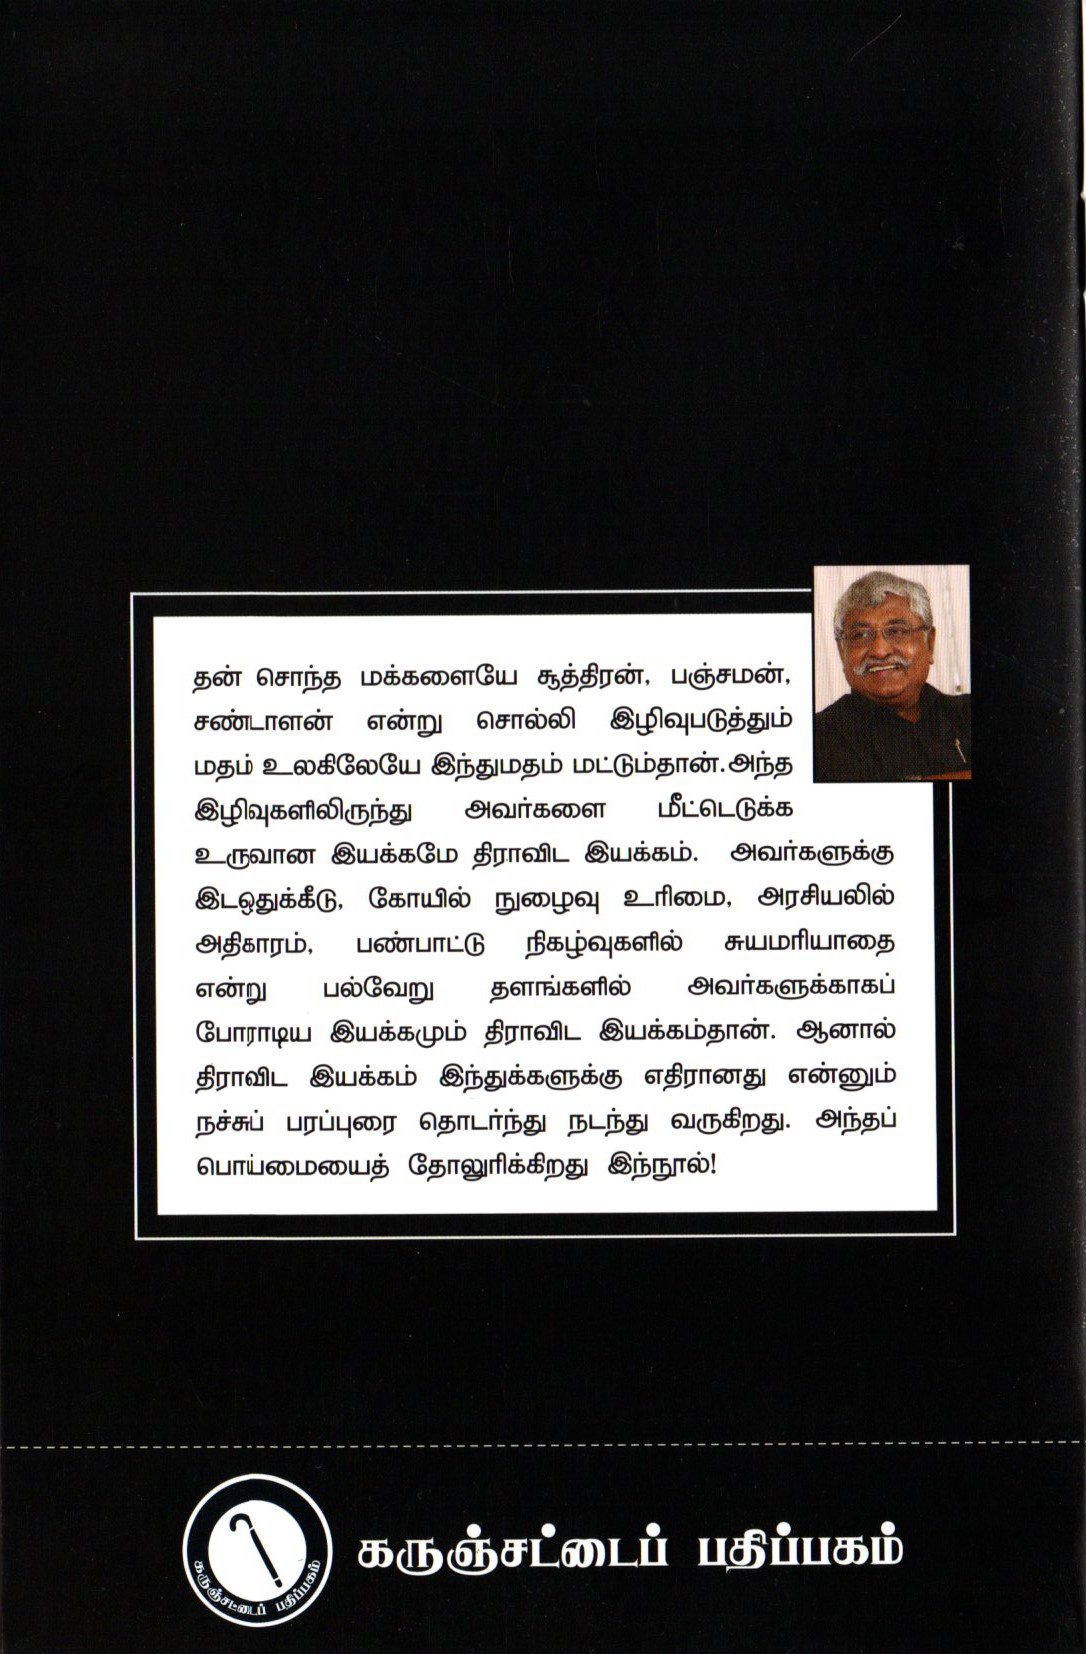 தன் சொந்த மக்களையே சூத்திரன், பஞ்சமன்,
சண்டாளன் என்று சொல்லி இழிவுபடுத்தும்
மதம் உலகிலேயே இந்துமதம் மட்டும்தான்.அந்த
இழிவுகளிலிருந்து அவர்களை மீட்டெடுக்க
உருவான இயக்கமே திராவிட இயக்கம். அவர்களுக்கு
இடஒதுக்கீடு, கோயில் நுழைவு உரிமை, அரசியலில்
அதிகாரம், பண்பாட்டு நிகழ்வுகளில் சுயமரியாதை
என்று பல்வேறு தளங்களில் அவர்களுக்காகப்
போராடிய இயக்கமும் திராவிட இயக்கம்தான். ஆனால்
திராவிட இயக்கம் இந்துக்களுக்கு எதிரானது என்னும்
நச்சுப் பரப்புரை தொடர்ந்து நடந்து வருகிறது. அந்தப்
பொய்மையைத் தோலுரிக்கிறது இந்நூல்!
கருஞ்சட்டைப் பதிப்பகம்
கருஞ்சட்டைப் பதிப்பகம்